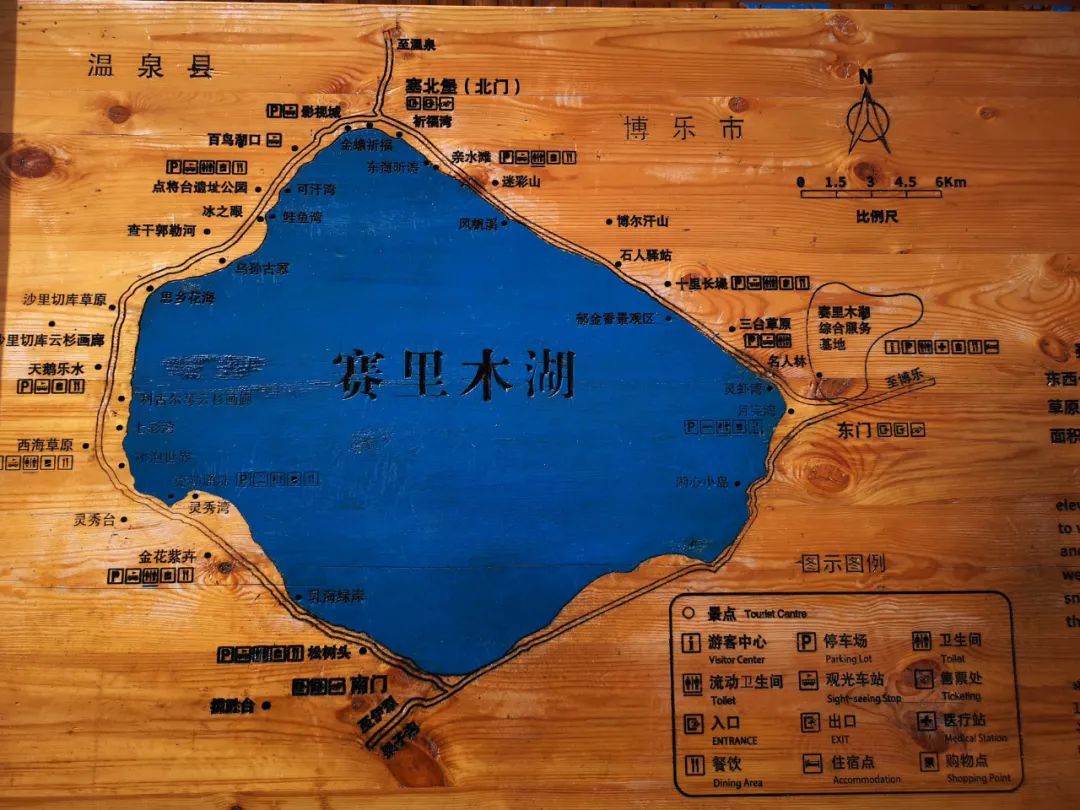 至温泉
温泉县
塞北堡（北门）
祈福湾
影视城
博乐市
N
百鸟湖口
金蟾祈福
亲水滩
东海昕涛
迷彩山
0 1.5 3 4.5 6Km
比例尺
点将台遗址公园
可汗湾
冰之眼
鲑鱼湾
风帆溪
博尔汗山
查干郭勒河
石人驿站
乌孙古冢
十里长堤
沙里切库草原
思乡花海
赛里木湖
综合服务
基地
郁金香景观区
三台草原
里切库云杉画廊
名人林
天鹅乐水
赛里木湖
至博乐
灵虾湾
月亮湾
东西
草原
面积
东门
西海草原
湖心小岛
灵秀湾
灵秀台
金花紫卉
图示图例
乳海绿岸
景点 Tourist Centre
游客中心 停车场 卫生间
Visitor Center Parking Lot Toilet
松树头
流动卫生间 观光车站 售票处
Toilet Sight-seeing Stop Ticketing
南门
入口 出口 医疗站
ENTRANCE EXIT Medical Station
餐饮 住宿点 购物点
Dining Area Accommodation Shopping Point